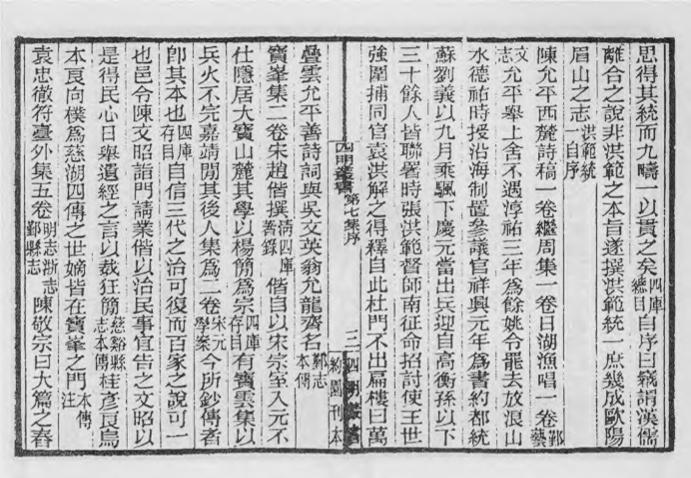 思得其統而九疇一以貫之矣四庫總目自序曰義謂漢儒
離合之說非洪範之本旨遂撰洪範統一庶幾成歐陽
眉山之志洪範統一自序
陳允平西麓詩稿一卷繼周集一卷日湖漁唱一卷鄞藝
文志允平舉上舍不遇淳祐三年爲餘姚令罷去放浪山
水德祐時授沿海制置參議官祥興元年爲書約都統
蘇劉義以九月乘颿下慶元當出兵迎自高衡孫以下
三十餘人皆聯署時張洪範督師南征命招討使王世
強圍捕同官袁洪解之得釋自此杜門不出扁樓曰萬
四明叢書 第七集序 三 四明叢書 約園刊本
疊雲允平善詩詞與吳文英翁允龍齊名鄞志本傳
寶峯集二卷宋趙偕撰清四庫著錄偕自以宋宗室入元不
仕隱居大寶山麓其學以楊簡爲宗四庫存目有寶雲集以
兵火不完嘉靖閒其後人集爲二卷宋元學案今所鈔傳者
卽其本也四庫存目自信三代之治可復而百家之說可一
也邑令陳文昭詣門請業偕以治民事宜告之文昭以
是得民心日舉遺經之言以裁狂簡慈谿縣志本傳桂彥良烏
本良向樸爲慈湖四傳之世嫡皆在寶峯之門本傳注
袁忠徹符臺外集五卷明志浙志鄞縣志陳敬宗曰大篇之舂